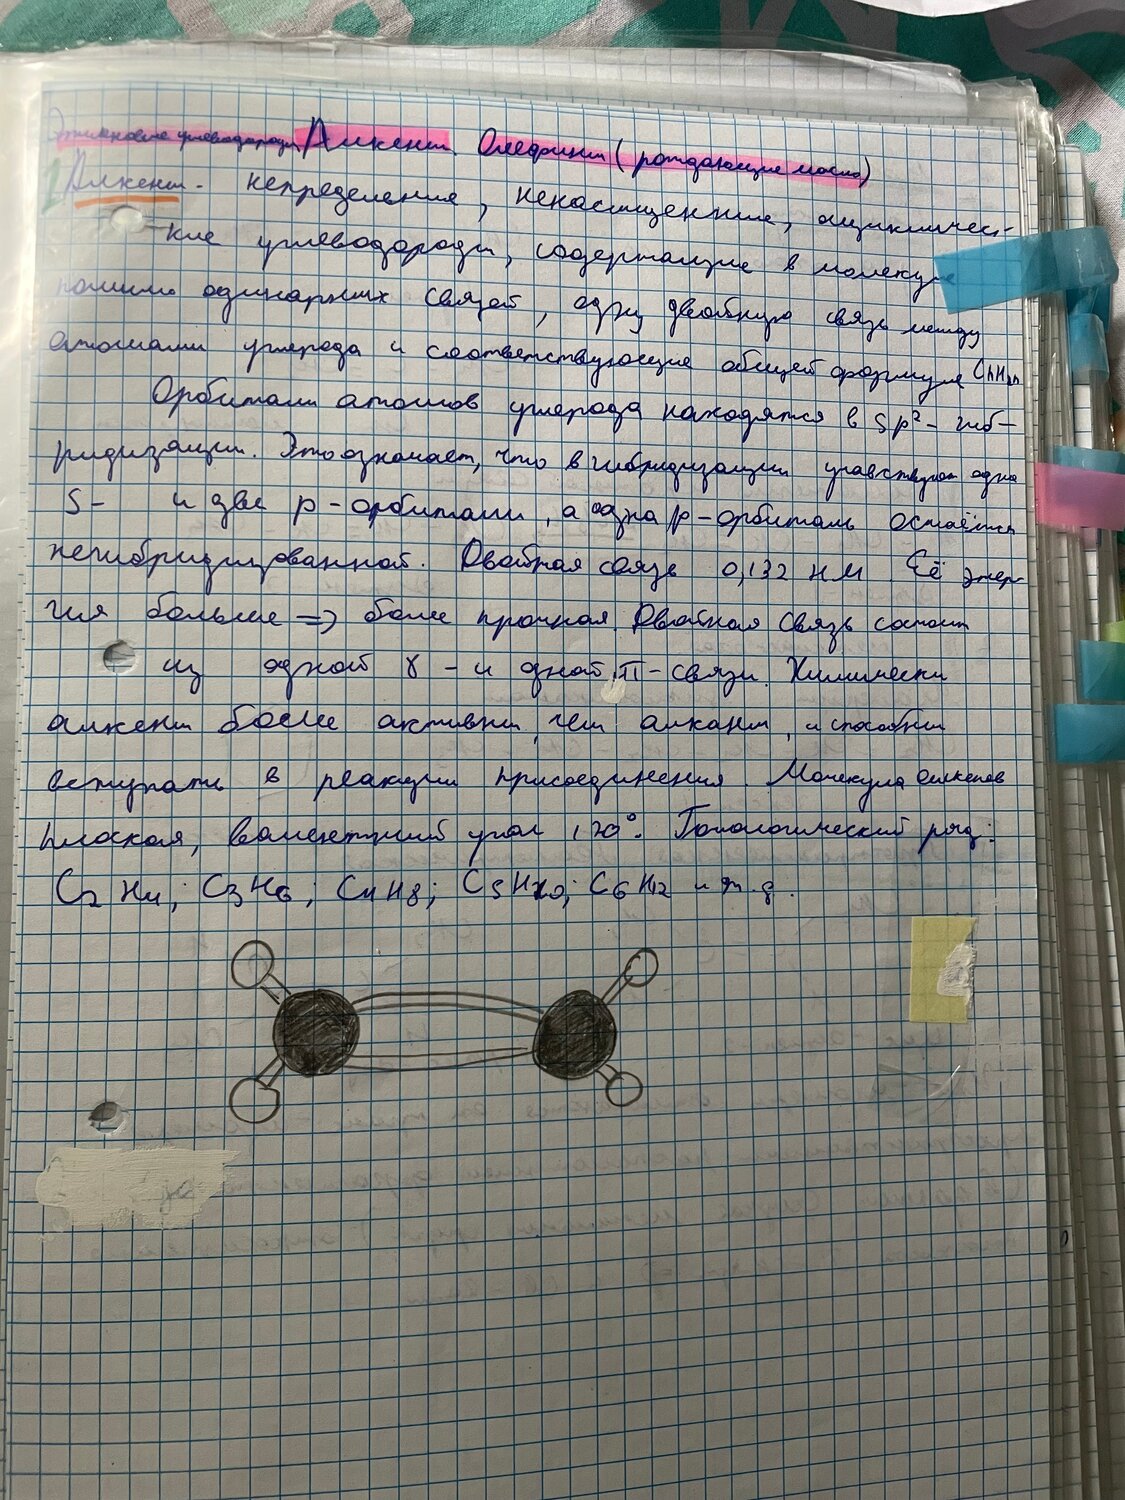 Этиленовые углеводороды Алкены. Олефины (рождающие масла)
1 Алкены - непредельные, ненасыщенные, ацикличес-
кие углеводороды, содержащие в молекуле
помимо одинарных связей, одну двойную связь между
атомами углерода и соответствующие общей формуле CnH2n.
Орбитали атомов углерода находятся в sp²- гиб-
ридизации. Это означает, что в гибридизации участвуют одна
s- и две p-орбитали, а одна p-орбиталь остаётся
негибридизованной. Двойная связь 0,132 нм Её энер-
гия больше => более прочная. Двойная связь состоит
из одной γ - и одной π-связи. Химически
алкены более активны, чем алканы, и способны
вступать в реакции присоединения. Молекула алкенов
плоская, валентный угол 120°. Гомологический ряд:
C2H4; C3H6; C4H8; C5H10; C6H12 и т.д.